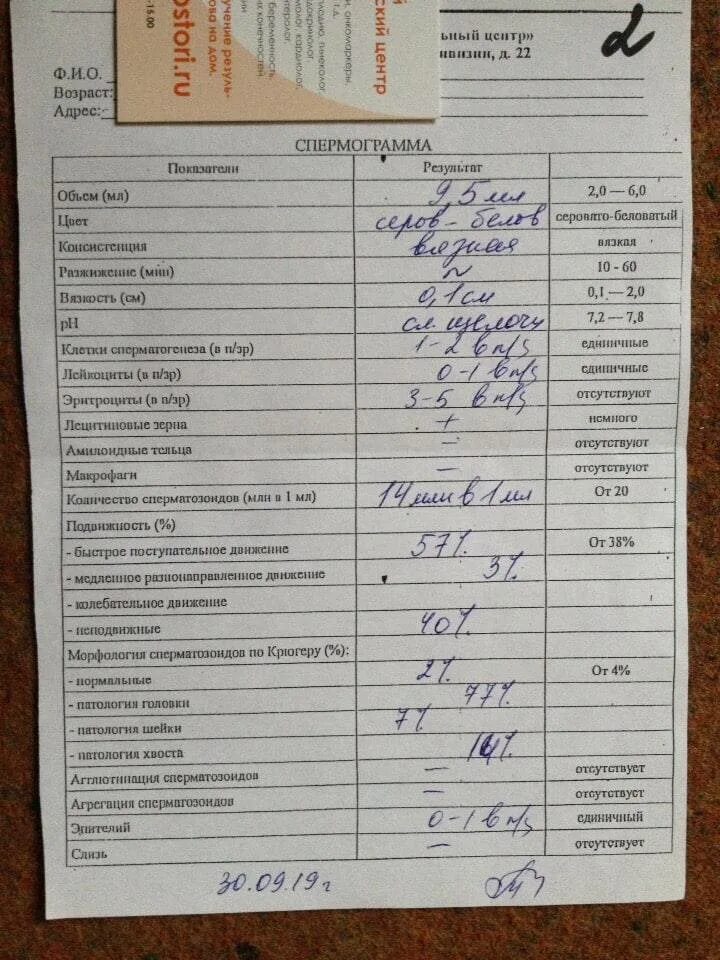 -15.00
учение резуль-
ова на дом.
ostori.ru
й
ский центр
льный центр»
ивизии, д. 22
2
Ф.И.О.
Возраст:
Адрес:
СПЕРМОГРАММА
Показатели Результат
Объем (мл) 9,5 мл 2,0 — 6,0
Цвет серов - белов серовато-беловатый
Консистенция вязкая вязкая
Разжижение (мин) ~ 10 - 60
Вязкость (см) 0,1 см 0,1 — 2,0
pH сл. щелочн 7,2 — 7,8
Клетки сперматогенеза (в п/зр) 1-2 в п/з единичные
Лейкоциты (в п/зр) 0-1 в п/з единичные
Эритроциты (в п/зр) 3-5 в п/з отсутствуют
Лецитиновые зерна + немного
Амилоидные тельца — отсутствуют
Макрофаги — отсутствуют
Количество сперматозоидов (млн в 1 мл) 14 млн в 1 мл От 20
Подвижность (%)
- быстрое поступательное движение 57% От 38%
- медленное разнонаправленное движение 3%
- колебательное движение
- неподвижные 40%
Морфология сперматозоидов по Крюгеру (%):
- нормальные 2% От 4%
- патология головки 77%
- патология шейки 7%
- патология хвоста 14%
Агглютинация сперматозоидов — отсутствует
Агрегация сперматозоидов — отсутствует
Эпителий 0-1 в п/з единичный
Слизь — отсутствует
30.09.19г